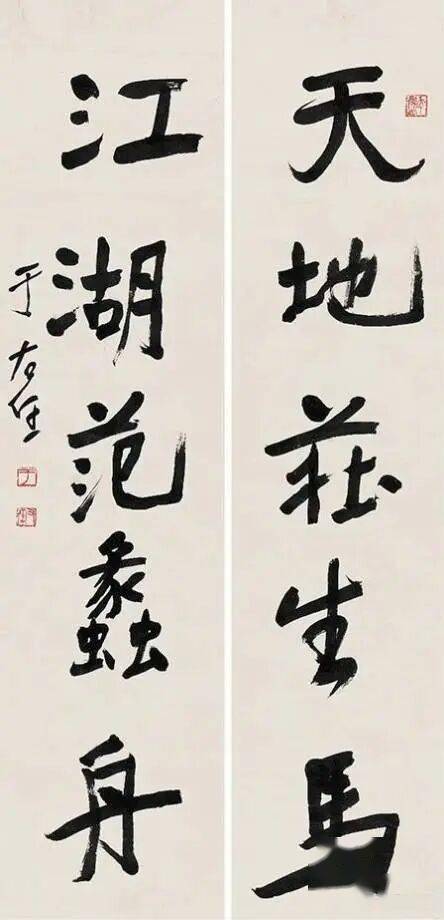 天地莊生馬
江湖范蠡舟
于右任